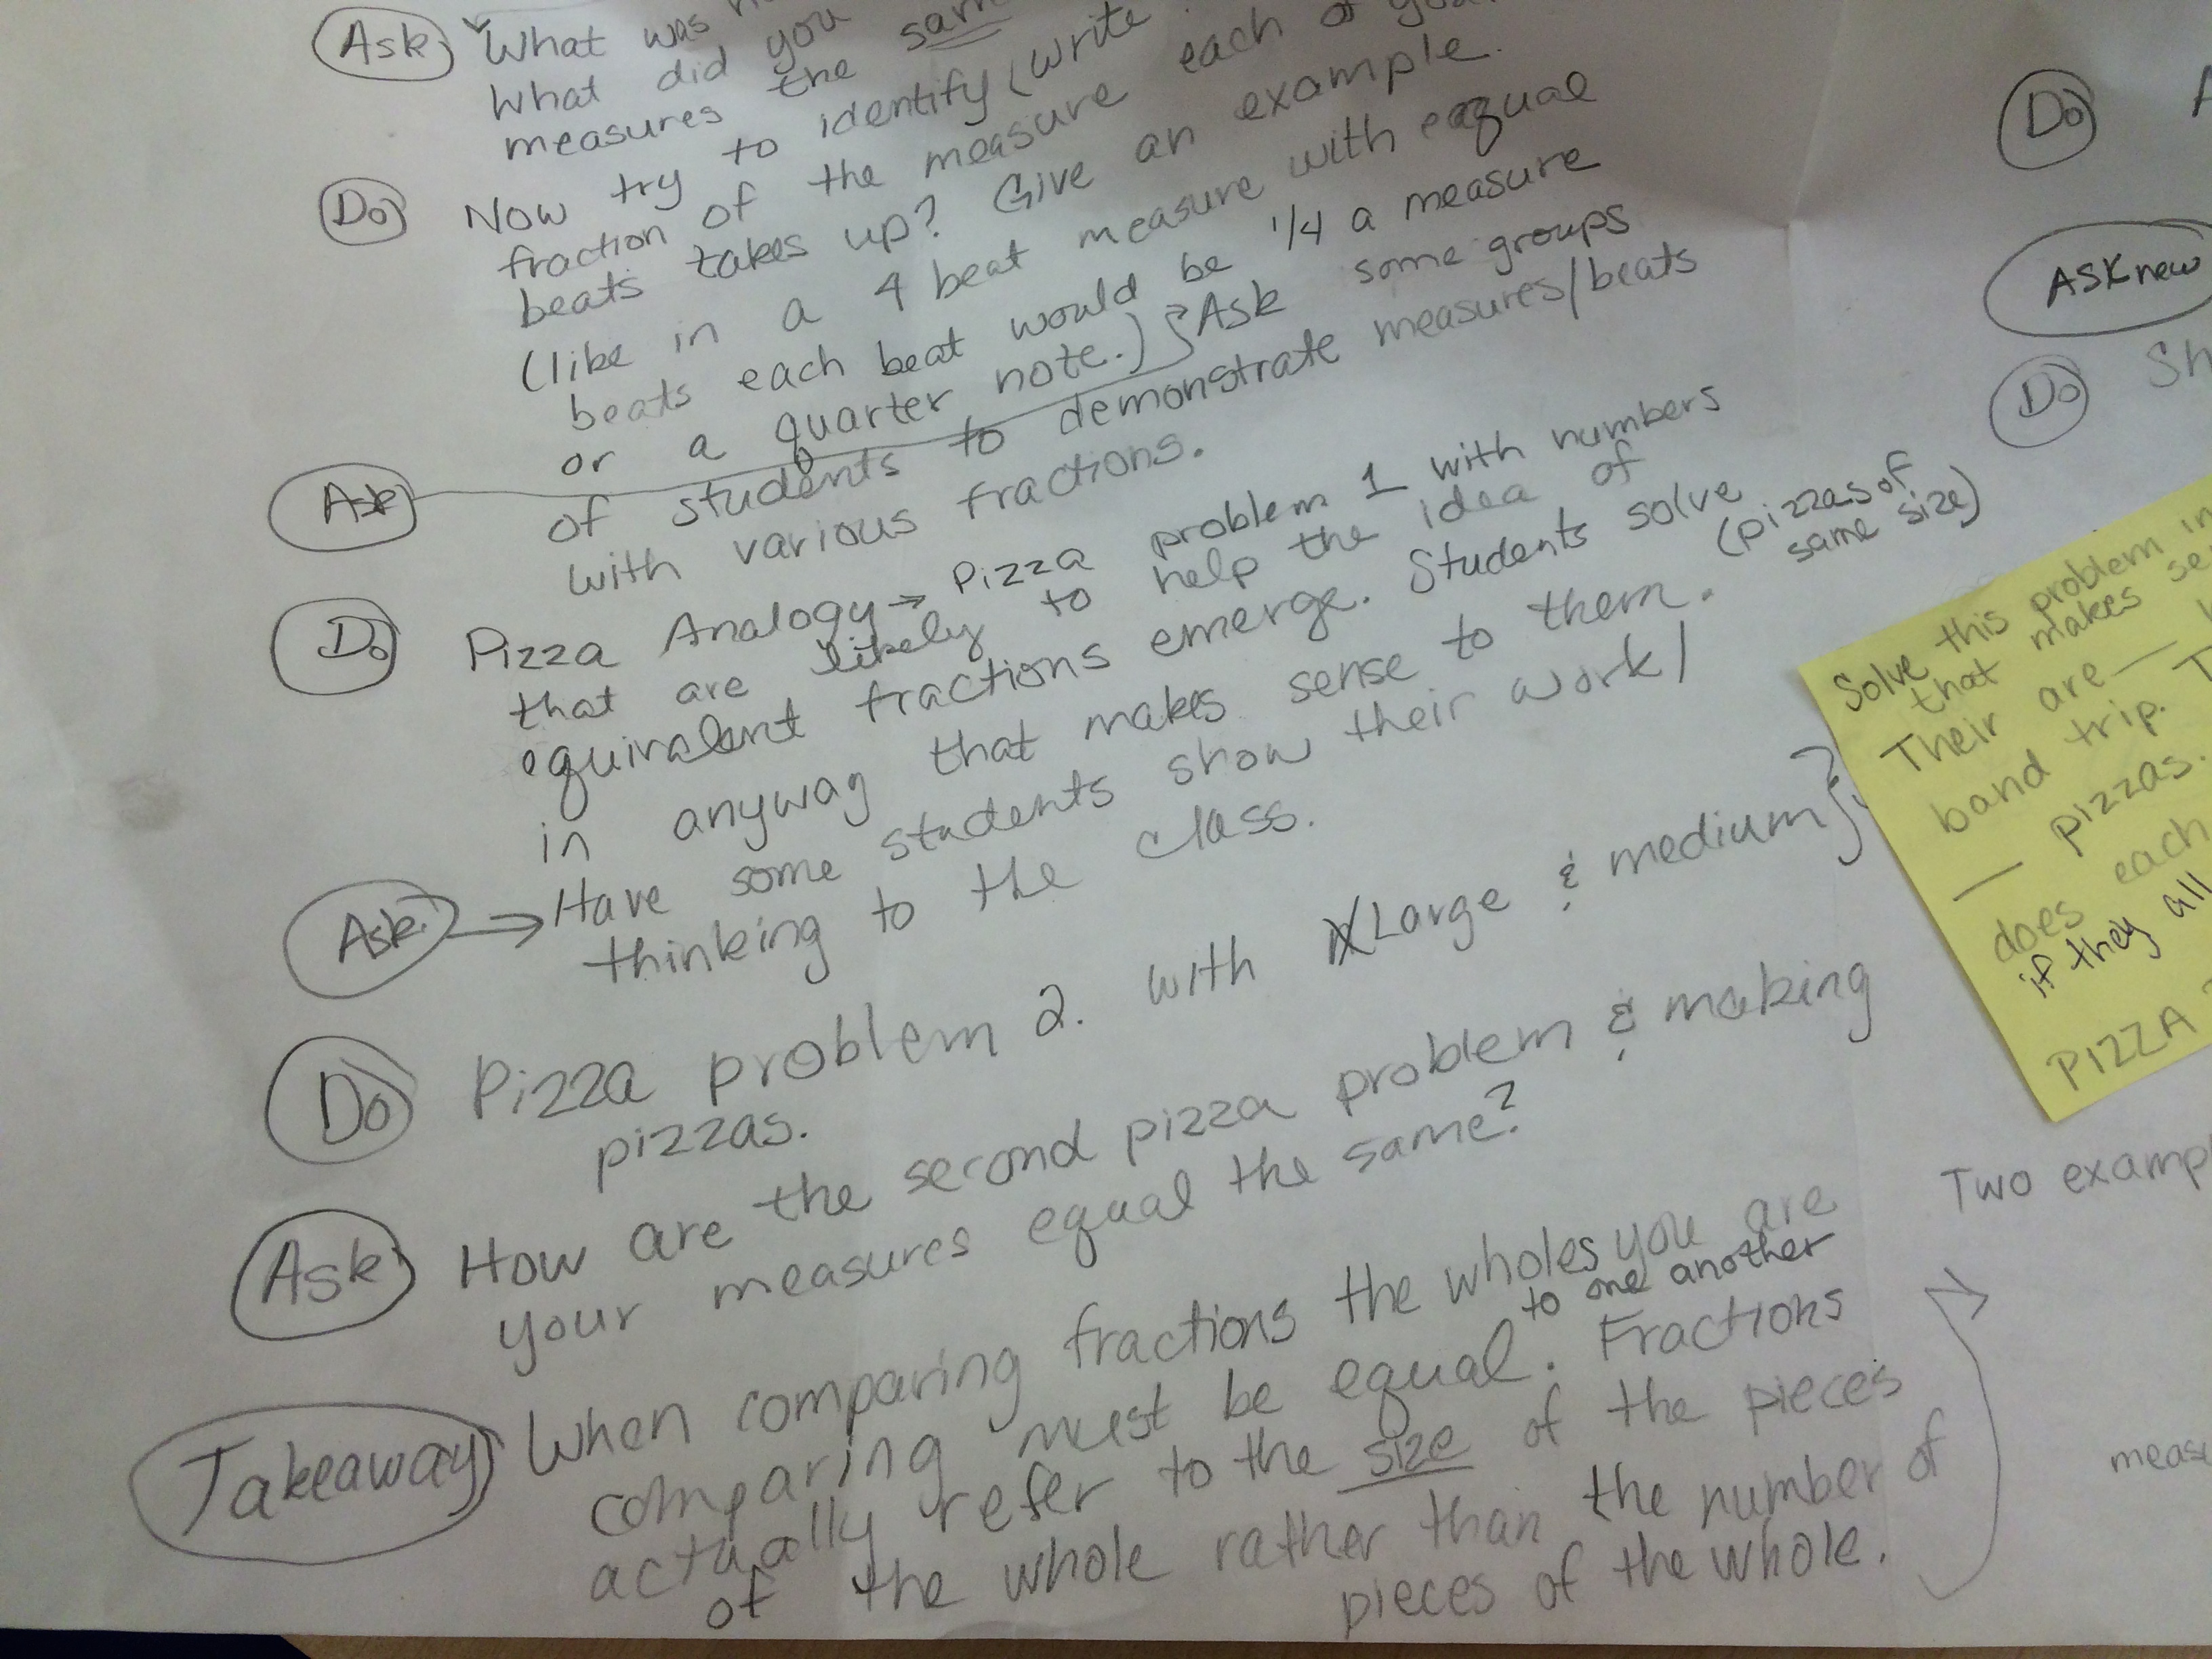 Ask What was
What did you
measures the same
Do Now try to identify (write
fraction of the measure each of your
beats takes up? Give an example.
(like in a 4 beat measure with eaqual
beats each beat would be 1/4 a measure
or a quarter note.) Ask some groups
Ask of students to demonstrate measures/beats
with various fractions.
Do Pizza Analogy → Pizza problem 1 with numbers
that are likely to help the idea of
equivalent fractions emerge. Students solve
in anyway that makes sense to them. (pizzas of
same size)
Ask → Have some students show their work/
thinking to the class.
Do Pizza problem 2. with XLarge & medium
pizzas.
Ask How are the second pizza problem & making
your measures equal the same?
Takeaway When comparing fractions the wholes you are
comparing must be equal to one another. Fractions
actually refer to the size of the pieces
of the whole rather than the number of
pieces of the whole.
Do
ASK new
Do Sh
Solve this problem in
that makes
Their are
band trip.
pizzas.
does each
if they all
PIZZA
Two